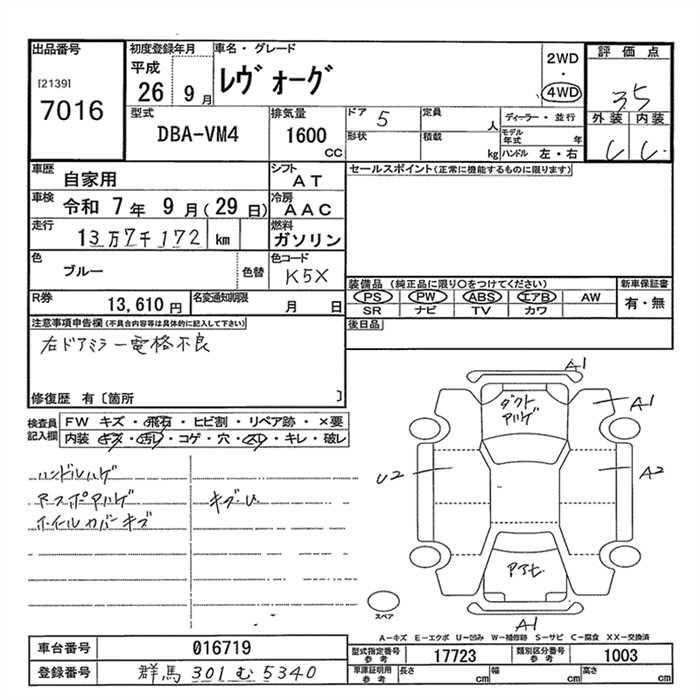 出品番号
[2139]
7016
初度登録年月
平成
26 9 月
車名・グレード
レヴォーグ
2WD
・
4WD
評価点
3.5
外装 内装
C C
型式
DBA-VM4
排気量
1600
CC
ドア 5
定員 人
ディーラー・並行
形状
積載 kg
モデル年式 年
ハンドル 左・右
車歴 自家用
シフト AT
セールスポイント(正常に機能するものに限ります)
車検 令和 7 年 9 月(29 日)
冷房 AAC
走行 13万7千172 km
燃料 ガソリン
色 ブルー 色替
色コード K5X
装備品(純正品に限り○をつけてください)
新車保証書
PS PW ABS エアB AW
有・無
SR ナビ TV カワ
R券 13,610 円
名変通知期限 月 日
後日品
注意事項申告欄(不具合内容等は具体的に記入して下さい)
右ドアミラー電格不良
修復歴 有〔箇所 〕
検査員記入欄
FW キズ・飛石・ヒビ割・リペア跡・×要
内装 キズ・汚レ・コゲ・穴・スレ・キレ・破レ
ハンドルハゲ
アスポアハゲ キズU
ホイルカバーキズ
A1
ダクト
アハゲ
A1
U2
A2
アアヒ
A1
スペア
A－キズ E－エクボ U－凹み W－補修跡 S－サビ C－腐食 XX－交換済
車台番号 016719
型式指定番号 参考 17723
類別区分番号 参考 1003
登録番号 群馬 301 む 5340
車庫証明用 参考 長さ cm 幅 cm 高さ cm